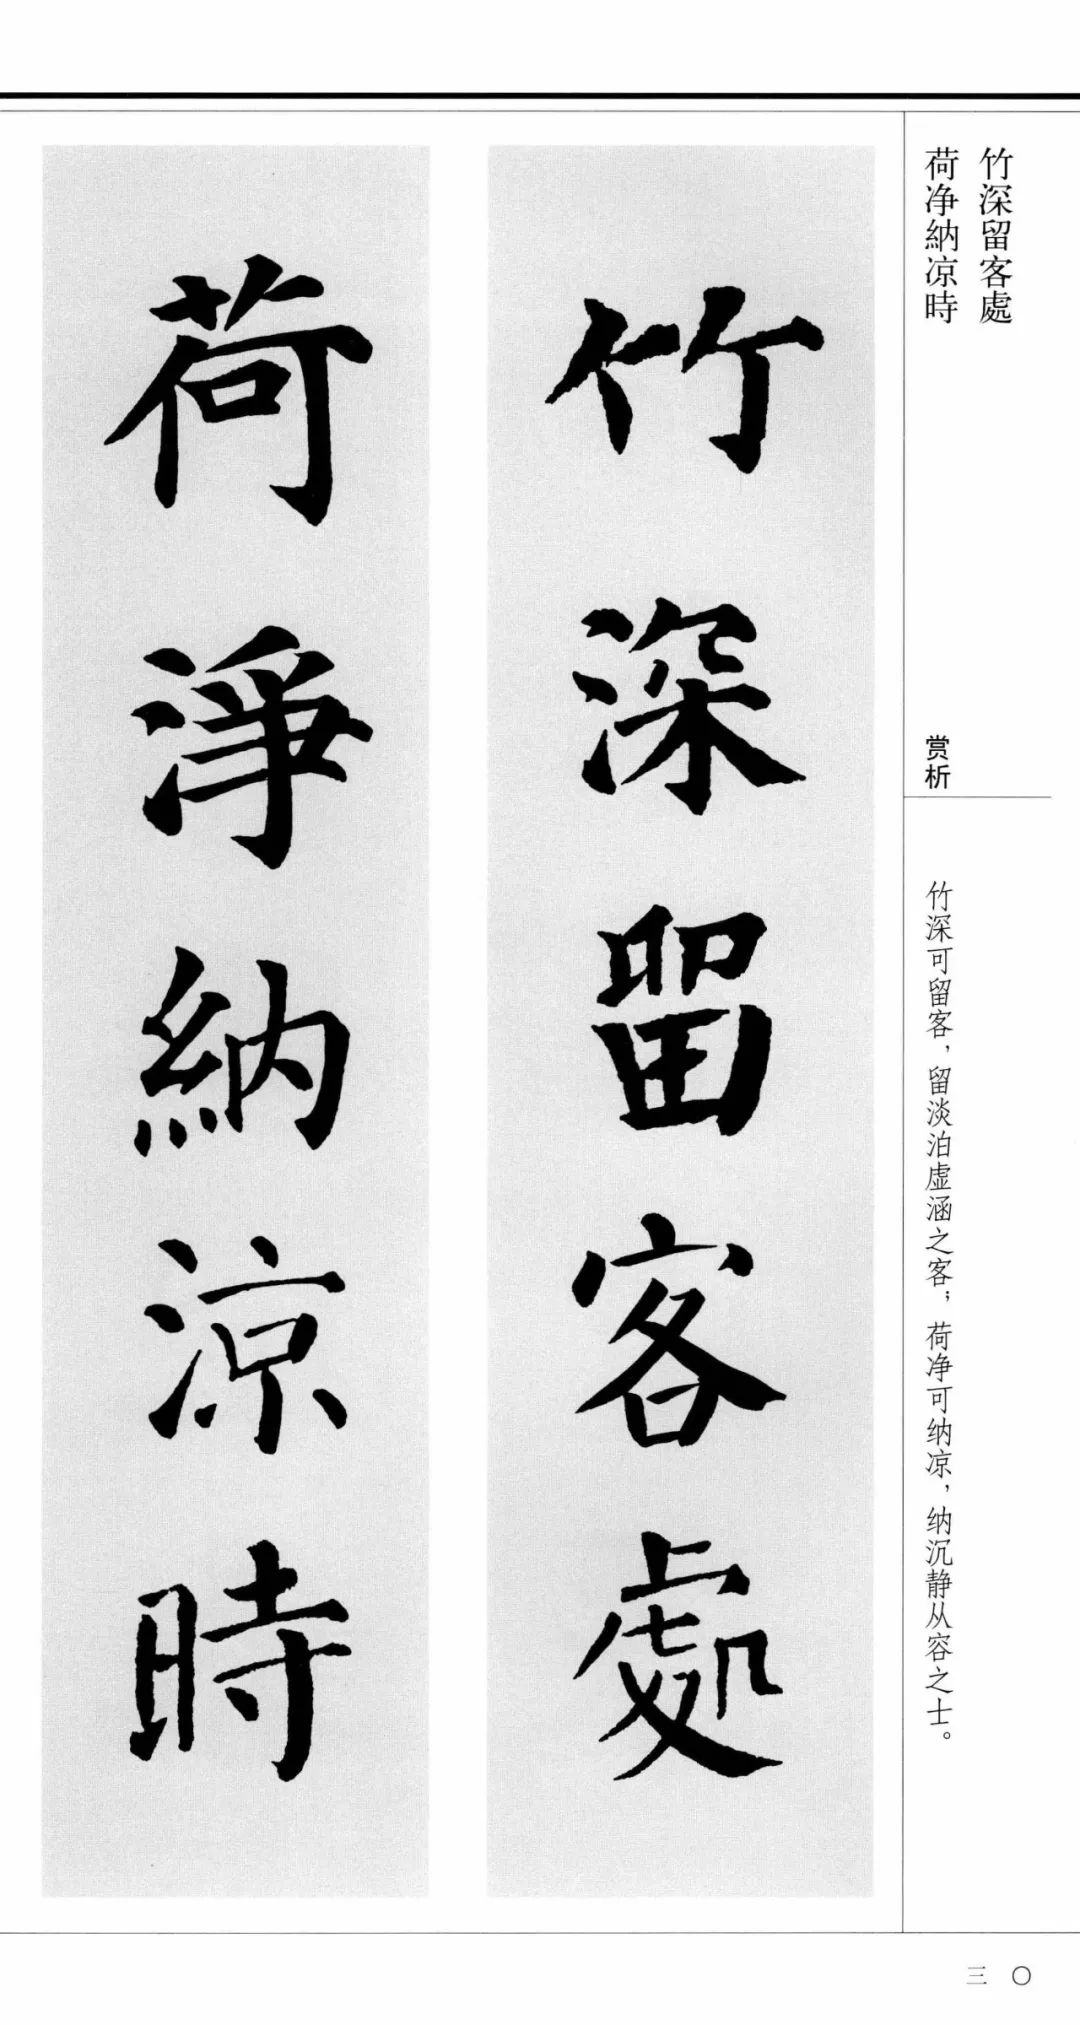 竹深留客處
荷净納凉時
赏析
竹深可留客，留淡泊虚涵之客；荷净可纳凉，纳沉静从容之士。
竹深留客處
荷淨納涼時
三〇